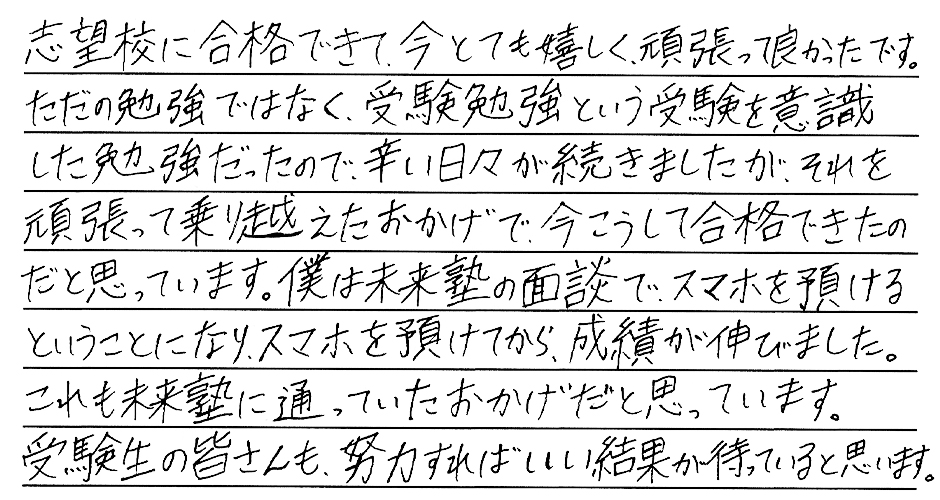 志望校に合格できて、今とても嬉しく、頑張って良かったです。
ただの勉強ではなく、受験勉強という受験を意識
した勉強だったので、辛い日々が続きましたが、それを
頑張って乗り越えたおかげで、今こうして合格できたの
だと思っています。僕は未来塾の面談で、スマホを預ける
ということになり、スマホを預けてから、成績が伸びました。
これも未来塾に通っていたおかげだと思っています。
受験生の皆さんも、努力すればいい結果が待っていると思います。